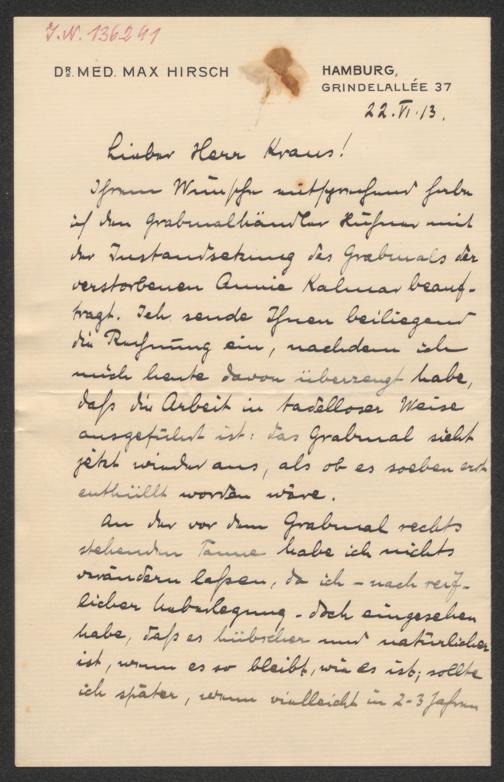 J.N. 136241
DR. MED. MAX HIRSCH
HAMBURG,
GRINDELALLÉE 37
22. VI. 13.
Lieber Herr Kraus!
Ihrem Wunsche entsprechend habe
ich den Grabmalhändler mit
der Instandsetzung des Grabmals der
verstorbenen Annie Kalmar beauf-
tragt. Ich sende Ihnen beiliegend
die Rechnung ein, nachdem ich
mich heute davon überzeugt habe,
daß die Arbeit in tadelloser Weise
ausgeführt ist: das Grabmal sieht
jetzt wieder aus, als ob es soeben erst
enthüllt worden wäre.
An der vor dem Grabmal rechts
stehenden Tanne habe ich nichts
verändern laßen, da ich – nach reif-
licher Ueberlegung – doch eingesehen
habe, daß es hübscher und natürlicher
ist, wenn es so bleibt, wie es ist; sollte
ich später, wenn vielleicht in 2-3 Jahren